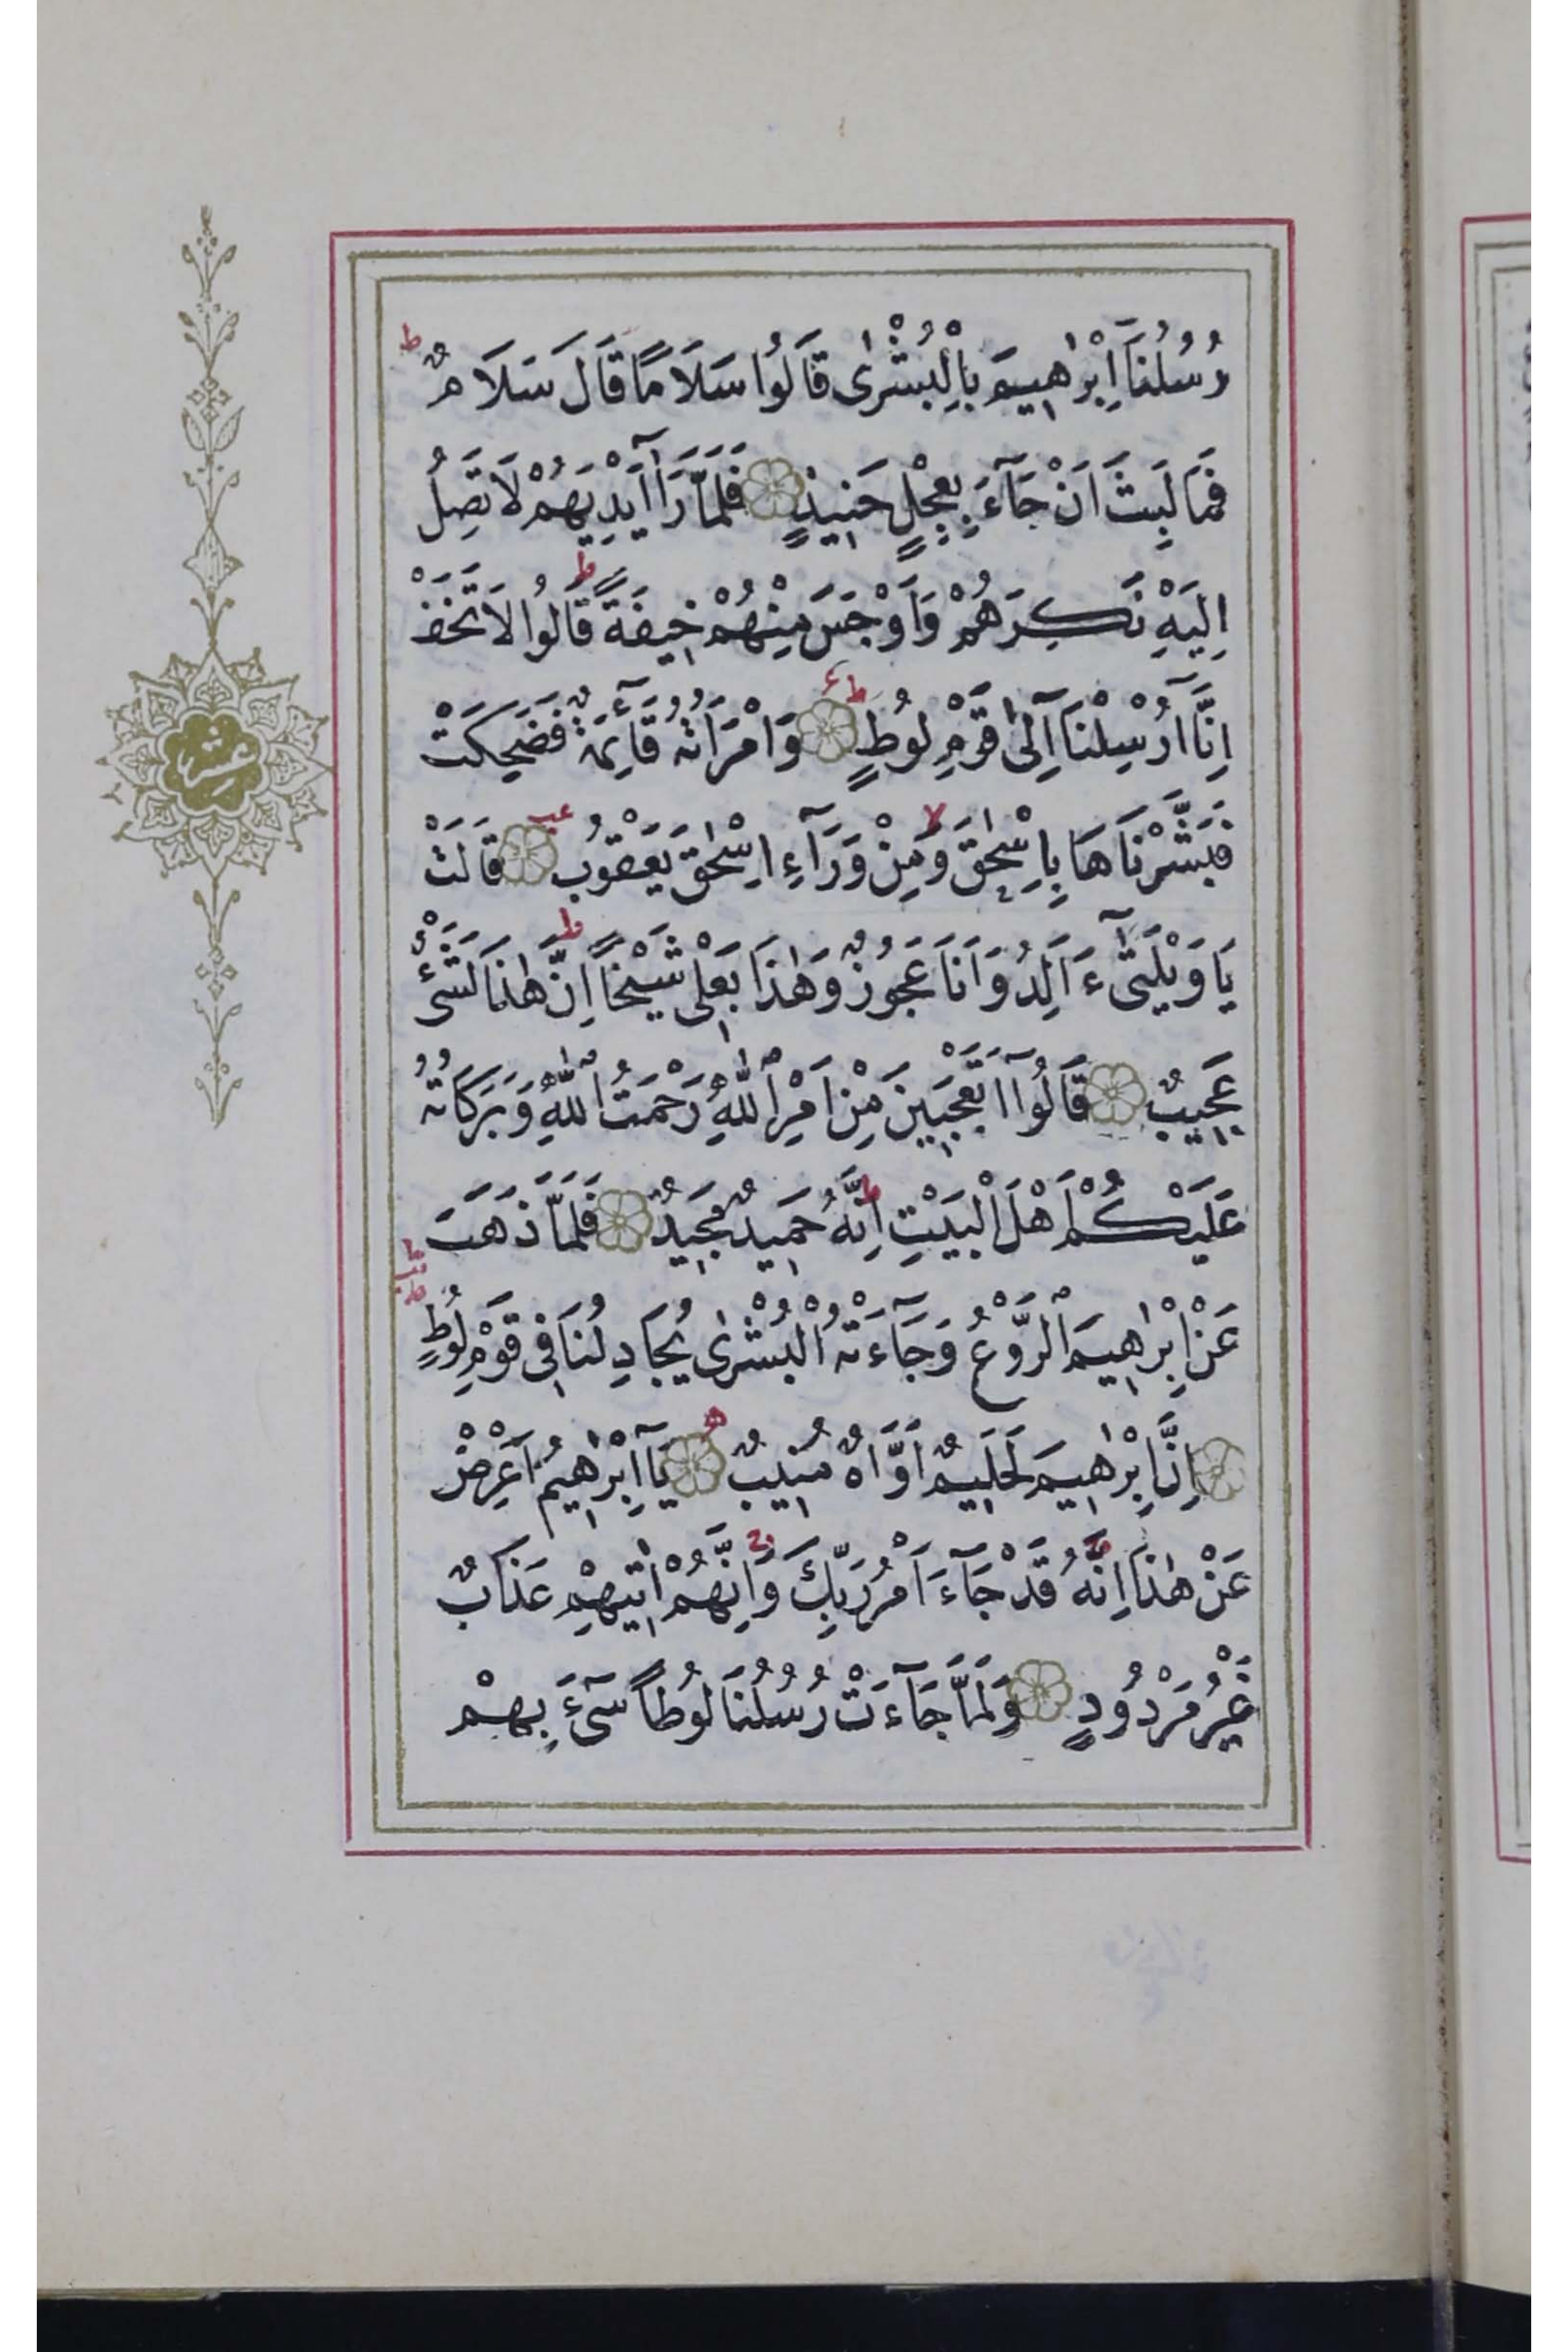 رُسُلُنَآ اِبْرٰهٖيمَ بِالْبُشْرٰى قَالُوا سَلَامًا قَالَ سَلَامٌ ط
فَمَا لَبِثَ اَنْ جَآءَ بِعِجْلٍ حَنٖيذٍ فَلَمَّا رَآٰ اَيْدِيَهُمْ لَا تَصِلُ
اِلَيْهِ نَكِرَهُمْ وَاَوْجَسَ مِنْهُمْ خٖيفَةً ط قَالُوا لَا تَخَفْ
اِنَّٓا اُرْسِلْنَٓا اِلٰى قَوْمِ لُوطٍ ط ع وَامْرَاَتُهُ قَٓائِمَةٌ فَضَحِكَتْ
فَبَشَّرْنَاهَا بِاِسْحٰقَ لا وَمِنْ وَرَٓاءِ اِسْحٰقَ يَعْقُوبَ عب قَالَتْ
يَا وَيْلَتٰٓى ءَاَلِدُ وَاَنَا عَجُوزٌ وَهٰذَا بَعْلٖى شَيْخًا ط اِنَّ هٰذَا لَشَىْءٌ
عَجٖيبٌ قَالُٓوا اَتَعْجَبٖينَ مِنْ اَمْرِ اللّٰهِ رَحْمَتُ اللّٰهِ وَبَرَكَاتُهُ
عَلَيْكُمْ اَهْلَ الْبَيْتِ ط اِنَّهُ حَمٖيدٌ مَجٖيدٌ فَلَمَّا ذَهَبَ
عَنْ اِبْرٰهٖيمَ الرَّوْعُ وَجَٓاءَتْهُ الْبُشْرٰى يُجَادِلُنَا فٖى قَوْمِ لُوطٍ
اِنَّ اِبْرٰهٖيمَ لَحَلٖيمٌ اَوَّاهٌ مُنٖيبٌ يَٓا اِبْرٰهٖيمُ اَعْرِضْ
عَنْ هٰذَا اِنَّهُ قَدْ جَٓاءَ اَمْرُ رَبِّكَ وَاِنَّهُمْ اٰتٖيهِمْ عَذَابٌ
غَيْرُ مَرْدُودٍ وَلَمَّا جَٓاءَتْ رُسُلُنَا لُوطًا سٓىءَ بِهِمْ